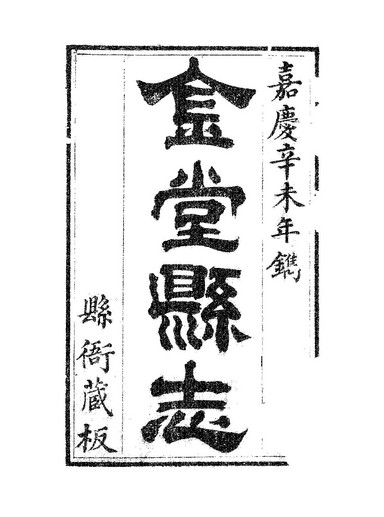 嘉慶辛未年鐫
金堂縣志
縣衙藏板